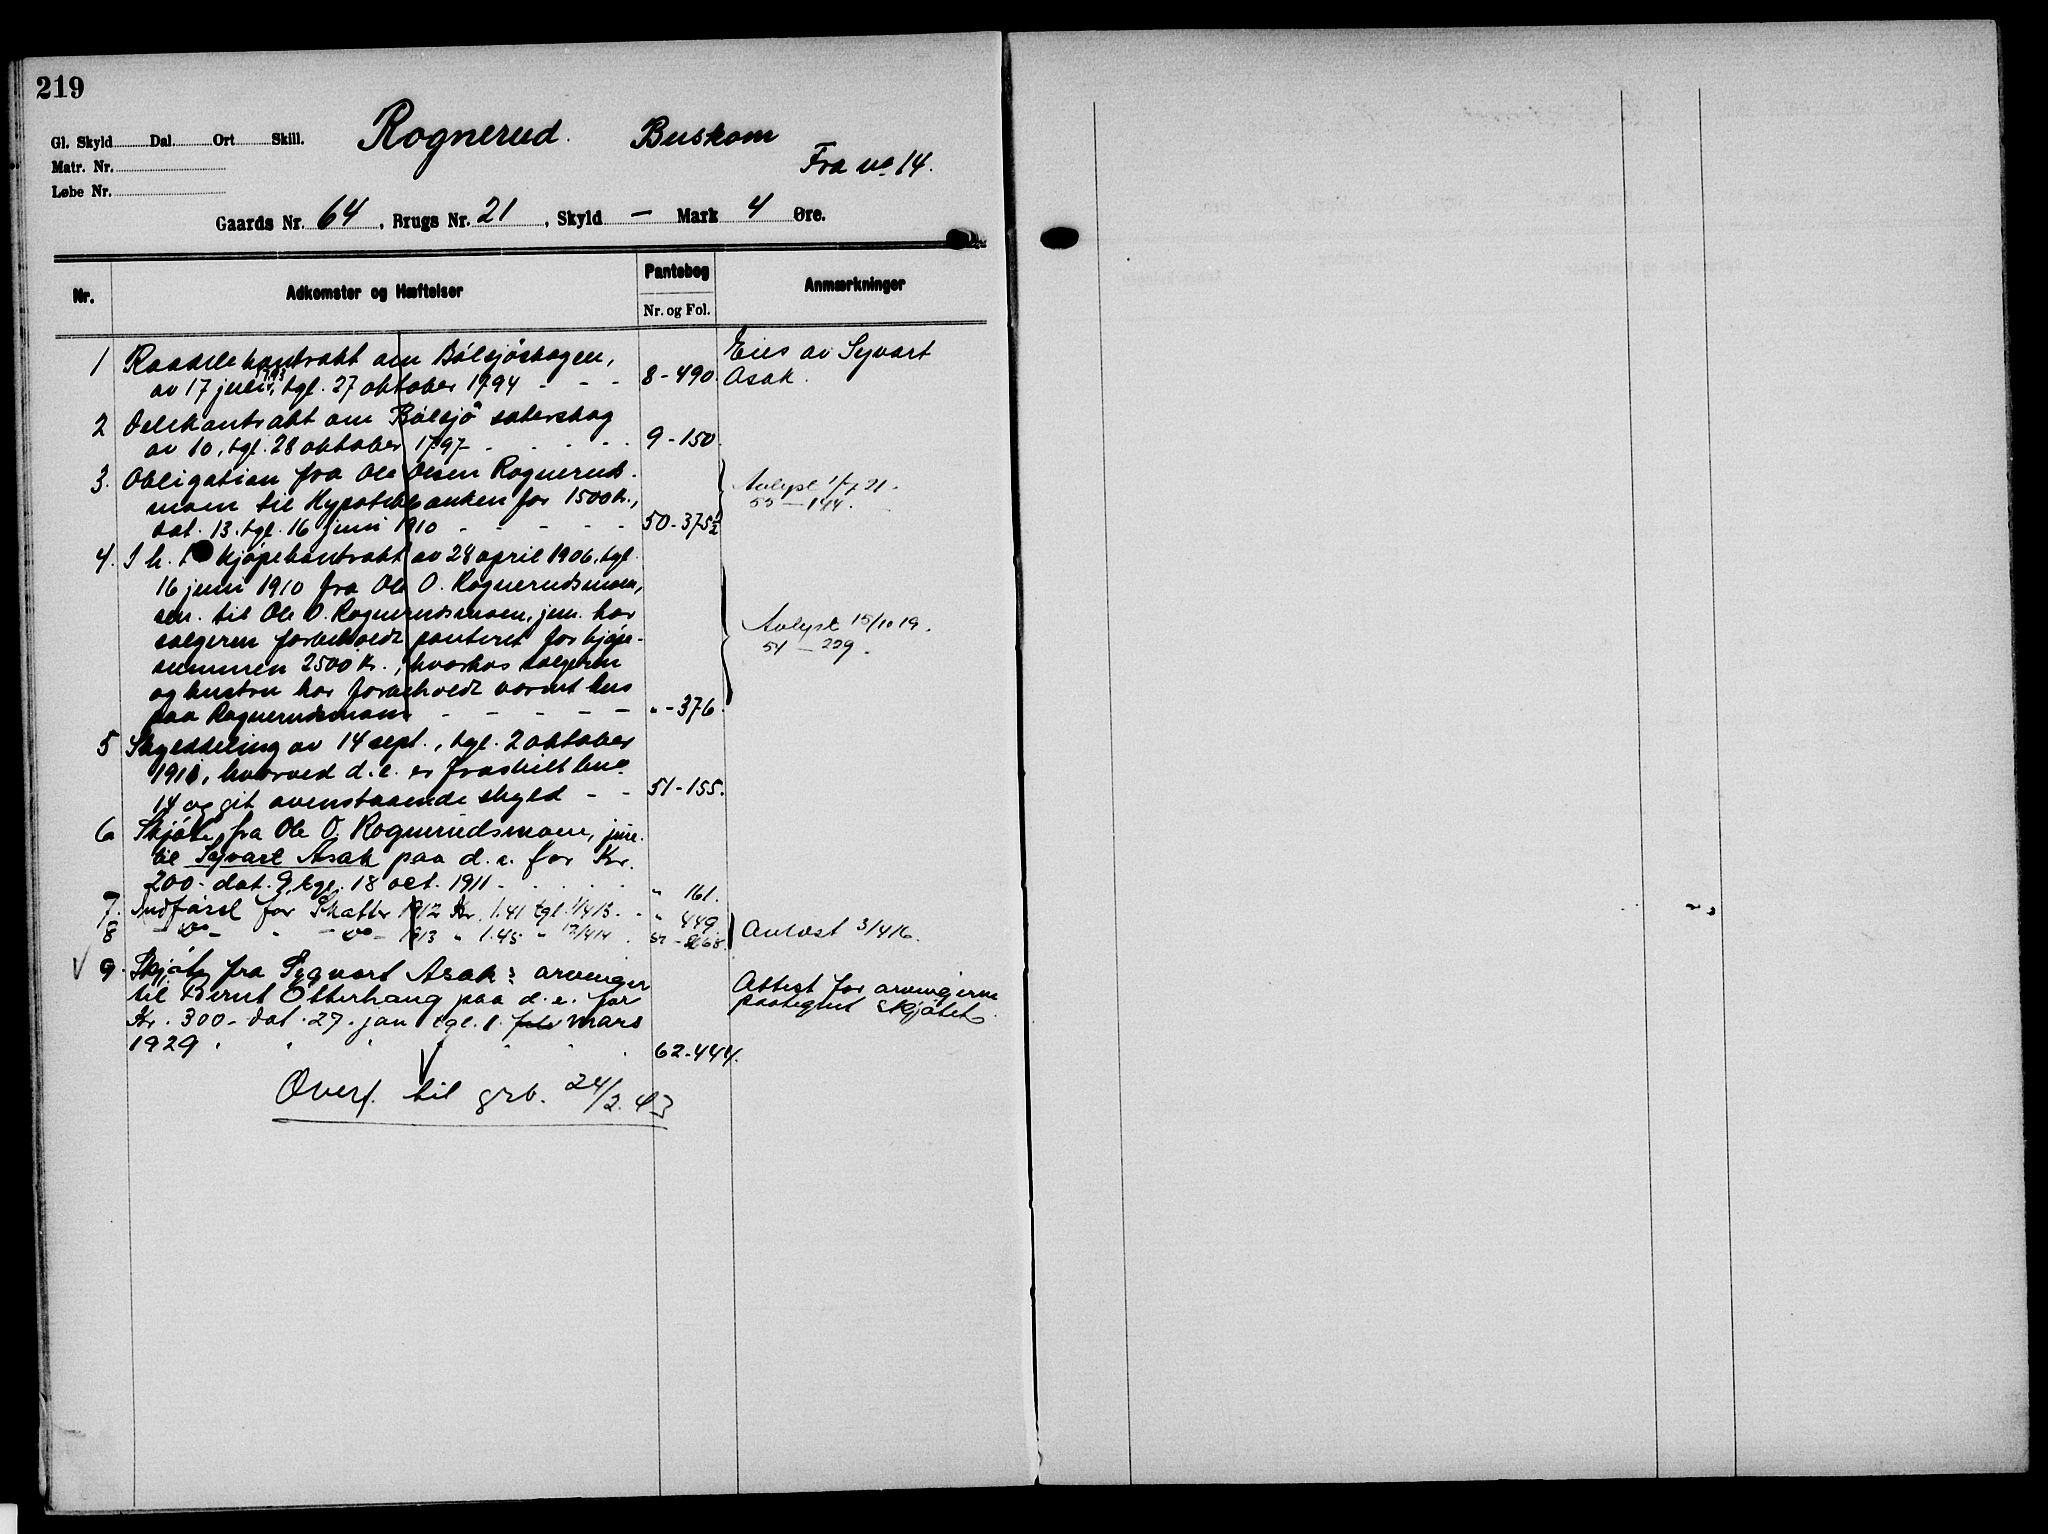 219
Gl. Skyld Dal. Ort Skill. Rognerud. Buskom
Matr. Nr. Fra no 14.
Løbe Nr.
Gaards Nr. 64, Brugs Nr. 21, Skyld — Mark 4 Øre.
Nr. Adkomster og Hæftelser Pantebog Anmærkninger
Nr. og Fol.
1 Raadelekontrakt om Bølsjøskogen, Eies av Syvart
av 17 juli 1793, tgl. 27 oktober 1794 - - - 8-490. Asak.
2 Delekontrakt om Bølsjø sæterskog
av 10, tgl. 28 oktober 1797 - - - - 9-150.
3. Obligation fra Ole Olsen Rogneruds-
moen til Hypotekbanken for 1500 kr., Avlyst 1/7 21.
dat. 13. tgl. 16 juni 1910 - - - - - 50-375½ 55-144.
4. I h. t. kjøpekontrakt av 28 april 1906, tgl.
16 juni 1910 fra Ole O. Rognerudsmoen,
sen. til Ole O. Rognerudsmoen, jun. har
sælgeren forbeholdt panteret for kjøpe- Avlyst 15/10 19.
summen 2500 kr., hvorhos sælgeren 54-229.
og hustru har forbeholdt varmt hus
paa Rognerudsmoen - - - - - " -376.
5 Skylddeling av 14 sept., tgl. 2 oktober
1911, hvorved d. e. er fraskilt bno
14 og git ovenstaaende skyld - - 51-155.
6 Skjøte fra Ole O. Rognerudsmoen, jun.
til Syvart Asak paa d. e. for Kr.
200.- dat. 9 tgl. 18 oct. 1911 - . . . . " 161.
7. Indførsel for Skatter 1912 Kr. 1.41 tgl. 1/4 13. . " 449
8 - do - " - do - 1913 " 1.45 " 12/4 14 . Avløst 3/4 16.
√ 9. Skjøte fra Sygvart Asak's arvinger Attest for arvingerne
til Bernt Otterhaug paa d. e. for paategnet skjøtet.
Kr. 300.- dat. 27. jan tgl. 1. febr mars
1929 . . . . . . 62-444.
Overf. til grb. 24/2. 43